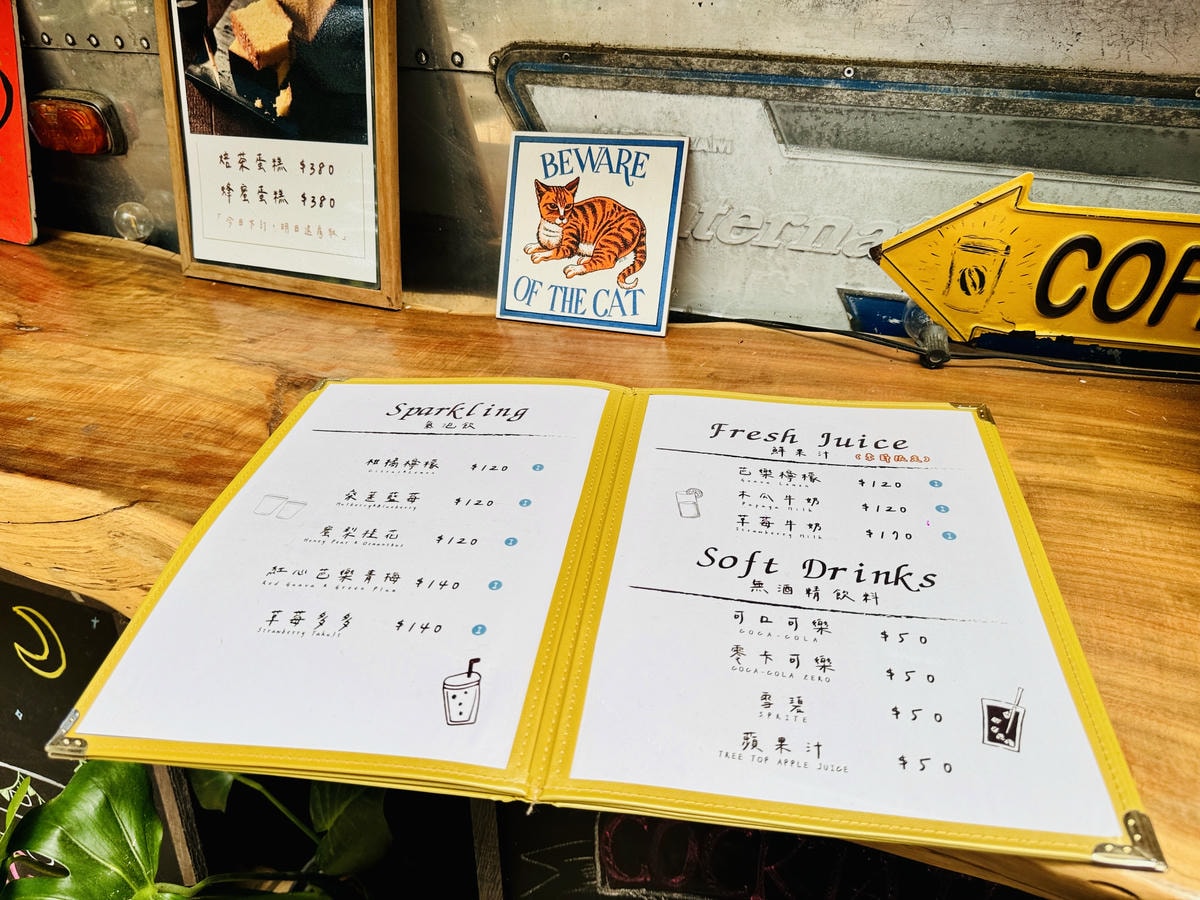 焙茶蛋糕 $380
蜂蜜蛋糕 $380
BEWARE
OF THE CAT
Sparkling
氣泡飲
柑橘檸檬 $120
桑葚藍莓 $120
Mulberry&Blueberry
蜜梨桂花 $120
Honey Pear & Osmanthus
紅心芭樂青梅 $140
Red Guava & Green Plum
草莓多多 $140
Strawberry Yakult
Fresh Juice
鮮果汁
芭樂檸檬 $120
Guava Lemon
木瓜牛奶 $120
Papaya Milk
草莓牛奶 $170
Strawberry Milk
Soft Drinks
無酒精飲料
可口可樂 $50
COCA-COLA
零卡可樂 $50
COCA-COLA ZERO
雪碧 $50
SPRITE
蘋果汁 $50
TREE TOP APPLE JUICE